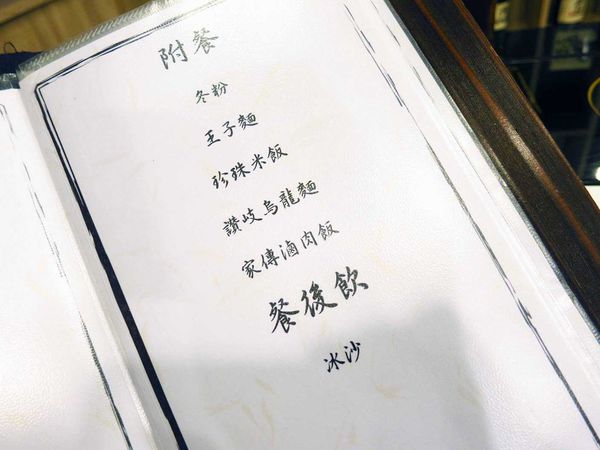 附餐
冬粉
王子麵
珍珠米飯
讚岐烏龍麵
家傳滷肉飯
餐後飲
冰沙